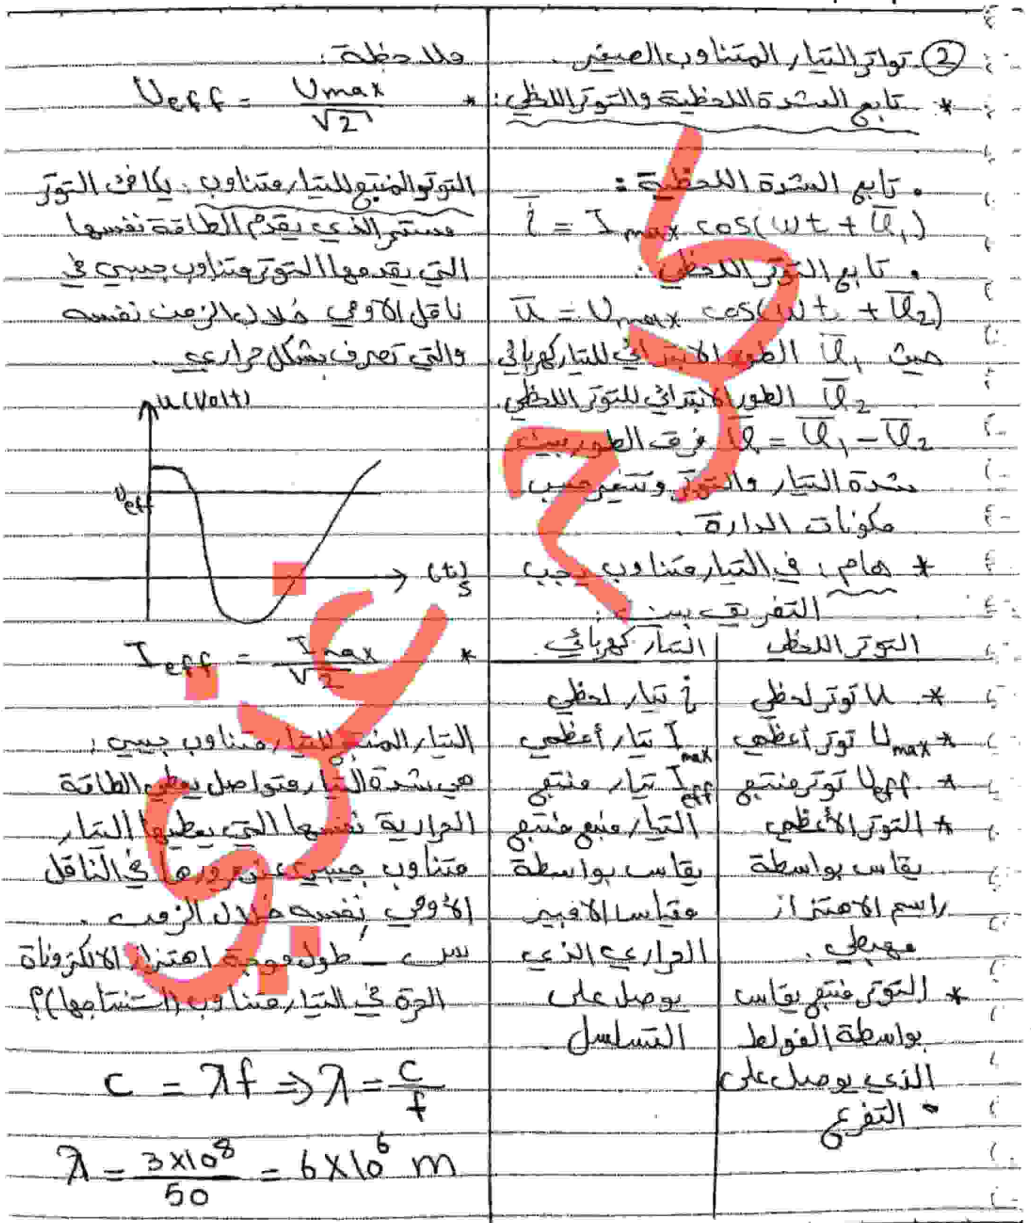 ② تواتر التيار المتناوب الصغير.
* تابع الشدة اللحظية والتوتر اللحظي:
• تابع الشدة اللحظية:
i̅ = I max cos(ωt + φ̅₁)
• تابع التوتر اللحظي:
u̅ = U max cos(ωt + φ̅₂)
حيث φ̅₁ الطور الابتدائي للتيار كهربائي
φ̅₂ الطور الابتدائي للتوتر اللحظي.
φ̅ = φ̅₁ - φ̅₂ فرق الطور بين
شدة التيار والتوتر وتتغير حسب
مكونات الدارة.
* هام: في التيار متناوب يجب
التفريق بين:
التوتر اللحظي
* u توتر لحظي
* Umax توتر أعظمي
* Ueff توتر منتج
* التوتر الأعظمي
يقاس بواسطة
راسم الاهتزاز
مهبطي.
* التوتر منتج يقاس
بواسطة الفولط
الذي يوصل على
التفرع.
التيار كهربائي.
i تيار لحظي
Imax تيار أعظمي
Ieff تيار منتج
التيار منتج
يقاس بواسطة
مقياس الامبير
الحراري الذي
يوصل على
التسلسل.
ملاحظة:
* Ueff = Umax / √2
التوتر المنتج للتيار متناوب: يكافئ التوتر
مستمر الذي يقدم الطاقة نفسها
التي يقدمها التوتر متناوب جيبي في
ناقل الأومي خلال الزمن نفسه
والتي تصرف بشكل حراري.
u(Volt)
Ueff
(t)s
* Ieff = Imax / √2
التيار المنتج للتيار متناوب جيبي:
هي شدة التيار متواصل يعطي الطاقة
الحرارية نفسها التي يعطيها التيار
متناوب جيبي عند مرورها في الناقل
الأومي نفسه خلال الزمن.
س - طول موجة اهتزاز الالكترونات
الحرة في التيار متناوب (استنتاجها)؟
c = λf ⇒ λ = c/f
λ = 3×10⁸ / 50 = 6×10⁶ m